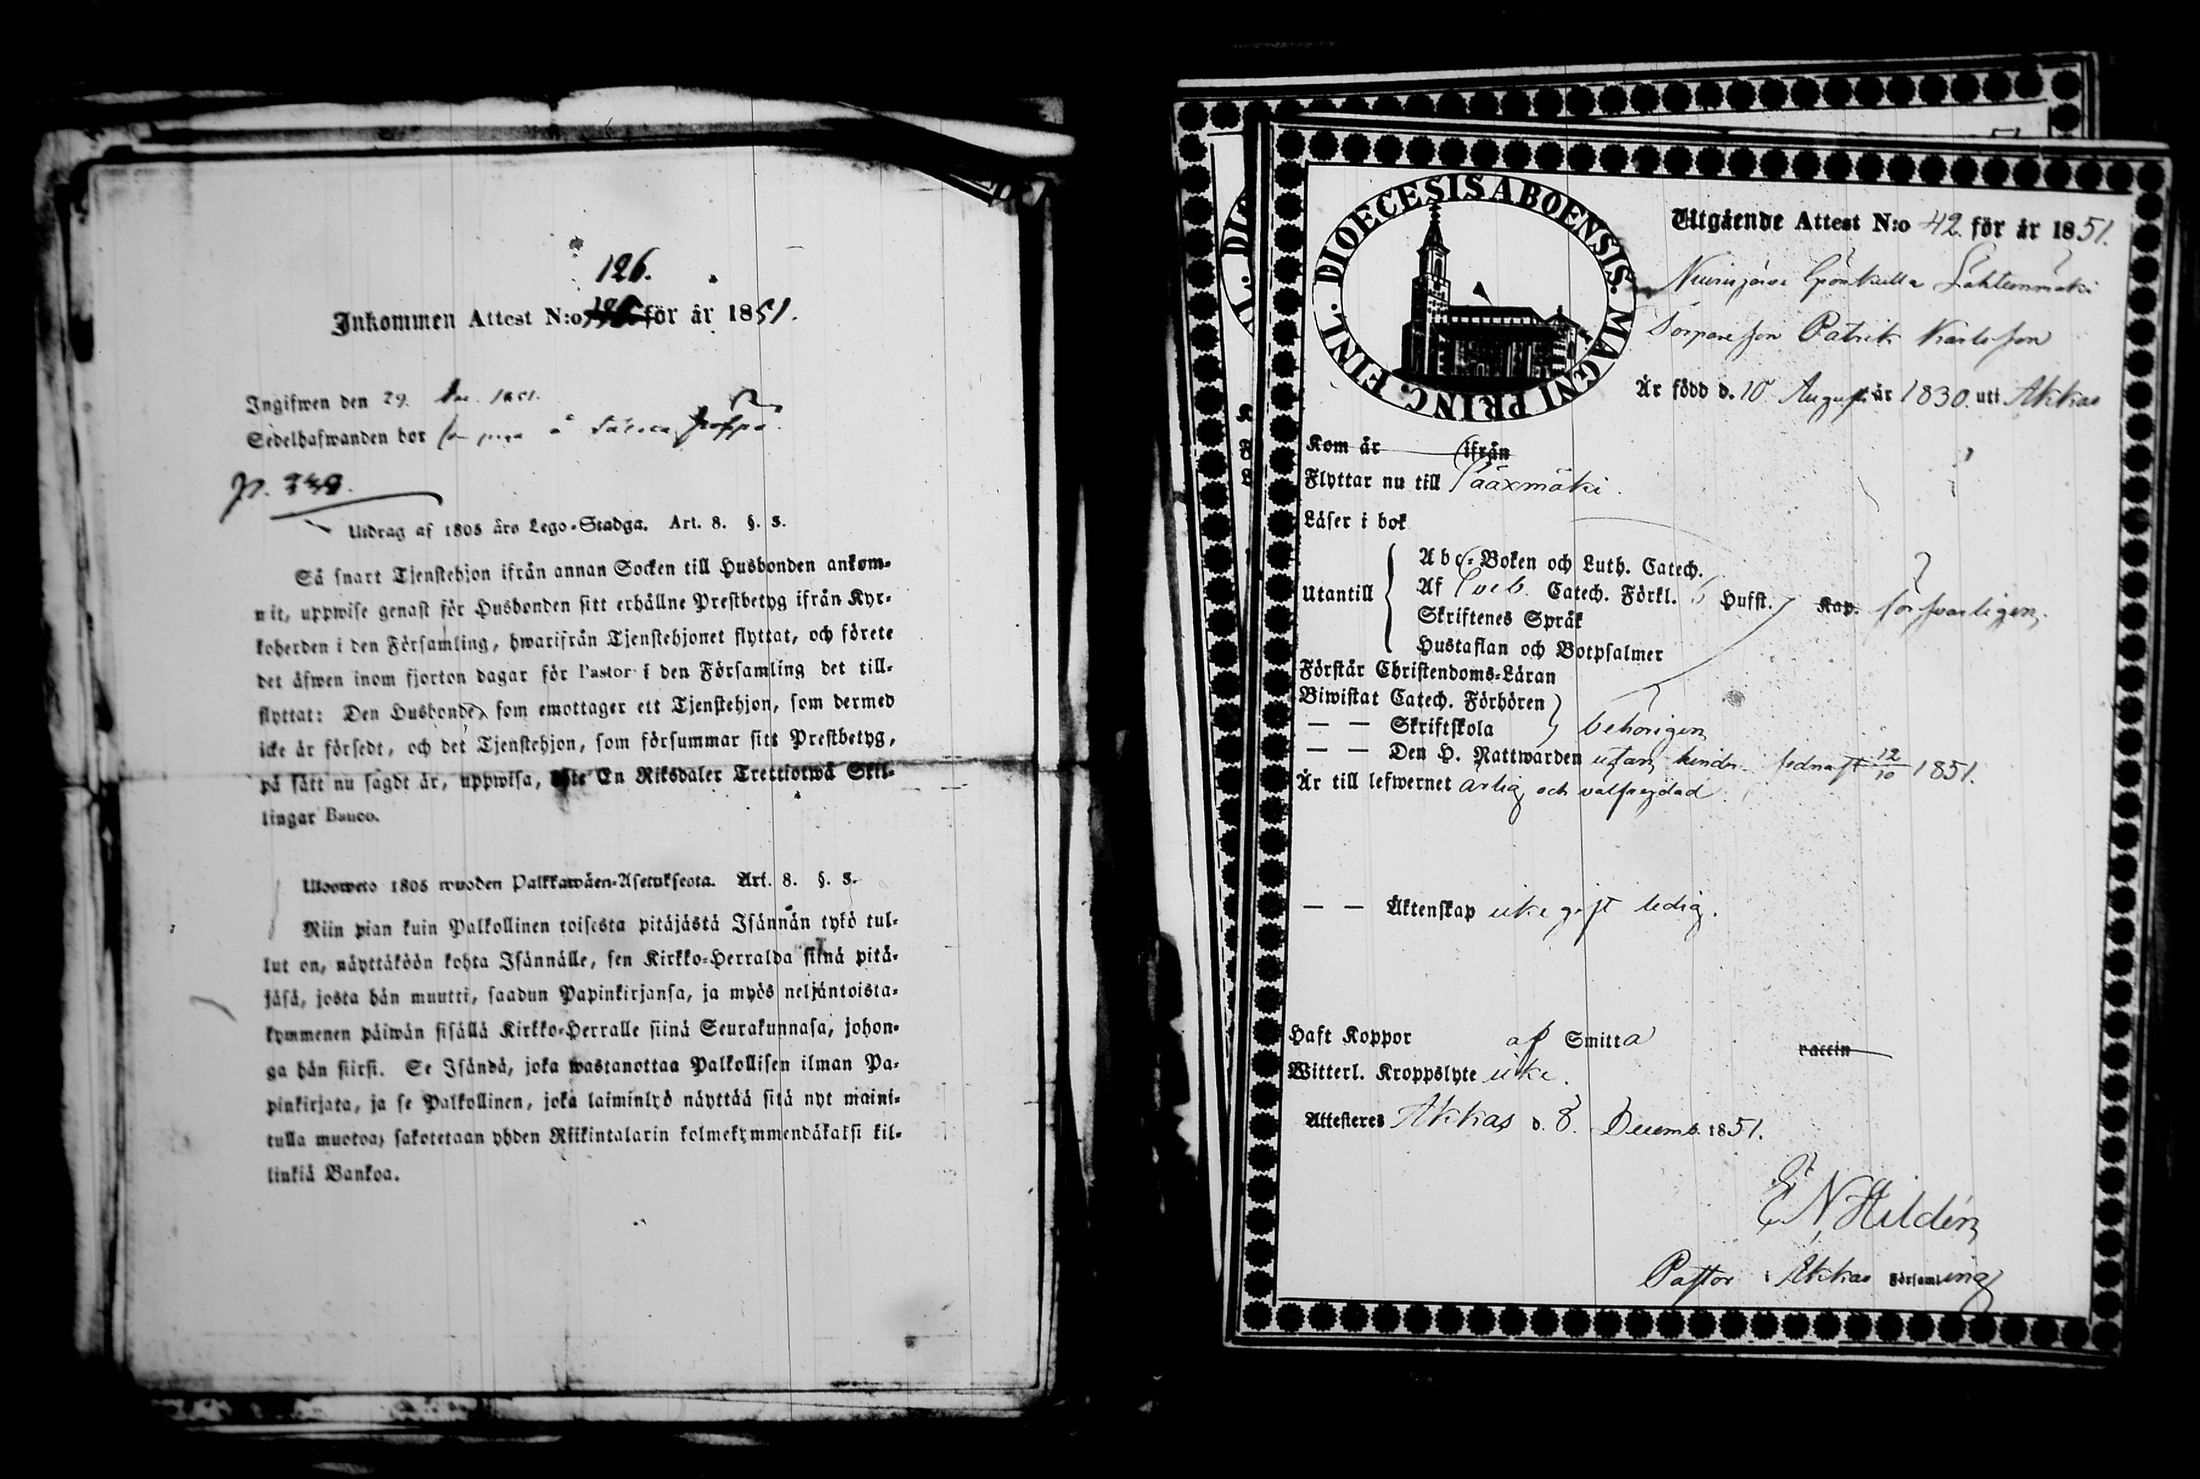 126.
Inkommen Attest N:o för år 1851.
Ingifwen den 29. 1851.
Sedelhafwanden bor
p. 348.
Utdrag af 1805 års Lego-Stadga. Art. 8. §. 3.
Så snart Tjenstehjon ifrån annan Socken till Husbonden ankom-
mit, uppwise genast för Husbonden sitt erhållne Prestbetyg ifrån Kyr-
koherden i den Församling, hwarifrån Tjenstehjonet flyttat, och förete
det äfwen inom fjorton dagar för Pastor i den Församling det till-
flyttat: Den Husbonde, som emottager ett Tjenstehjon, som dermed
icke är försedt, och det Tjenstehjon, som försummar sitt Prestbetyg,
på sätt nu sagdt är, uppwisa, böte En Riksdaler Trettiotwå Skil-
lingar Banco.
Ulosweto 1805 wuoden Palkkawäen-Asetuksesta. Art. 8. §. 3.
Niin pian kuin Palkollinen toisesta pitäjästä Isännän tykö tul-
lut on, näyttäköön kohta Isännälle, sen Kirkko-Herralda siinä pitä-
jäsä, josta hän muutti, saadun Papinkirjansa, ja myös neljäntoista-
kymmenen päiwän sisällä Kirkko-Herralle siinä Seurakunnasa, johon-
ga hän siirsi. Se Isändä, joka wastanottaa Palkollisen ilman Pa-
pinkirjata, ja se Palkollinen, joka laiminlyö näyttää sitä nyt maini-
tulla muotoa, sakotetaan yhden Riikintalarin kolmekymmendäkaksi kil-
linkiä Bankoa.
DIOECESIS ABOENSIS. MAGNI PRINC. FINL.
Utgående Attest N:o 42 för år 1851.
Lahtenmäki
Patrik Karlsson
Är född d. 10 August år 1830. uti Akkas
Kom år ifrån
Flyttar nu till Pääxmäki.
Läser i bok
Utantill
Abc-Boken och Luth. Catech.
Af Catech. Förkl. Husst. Kap. försvarligen.
Skriftenes Språk
Hustaflan och Botpsalmer
Förstår Christendoms-Läran
Biwistat Catech. Förhören
— — Skriftskola behörigen
— — Den H. Nattwarden utan hinder sednast 12/10 1851.
Är till lefwernet ärlig och välfrejdad
— — Äktenskap icke gift ledig.
Haft Koppor af Smitta vaccin
Witterl. Kroppslyte icke.
Attesteres Akkas d. 8. Decemb. 1851.
E N Hildén
Pastor i Akkas Församling